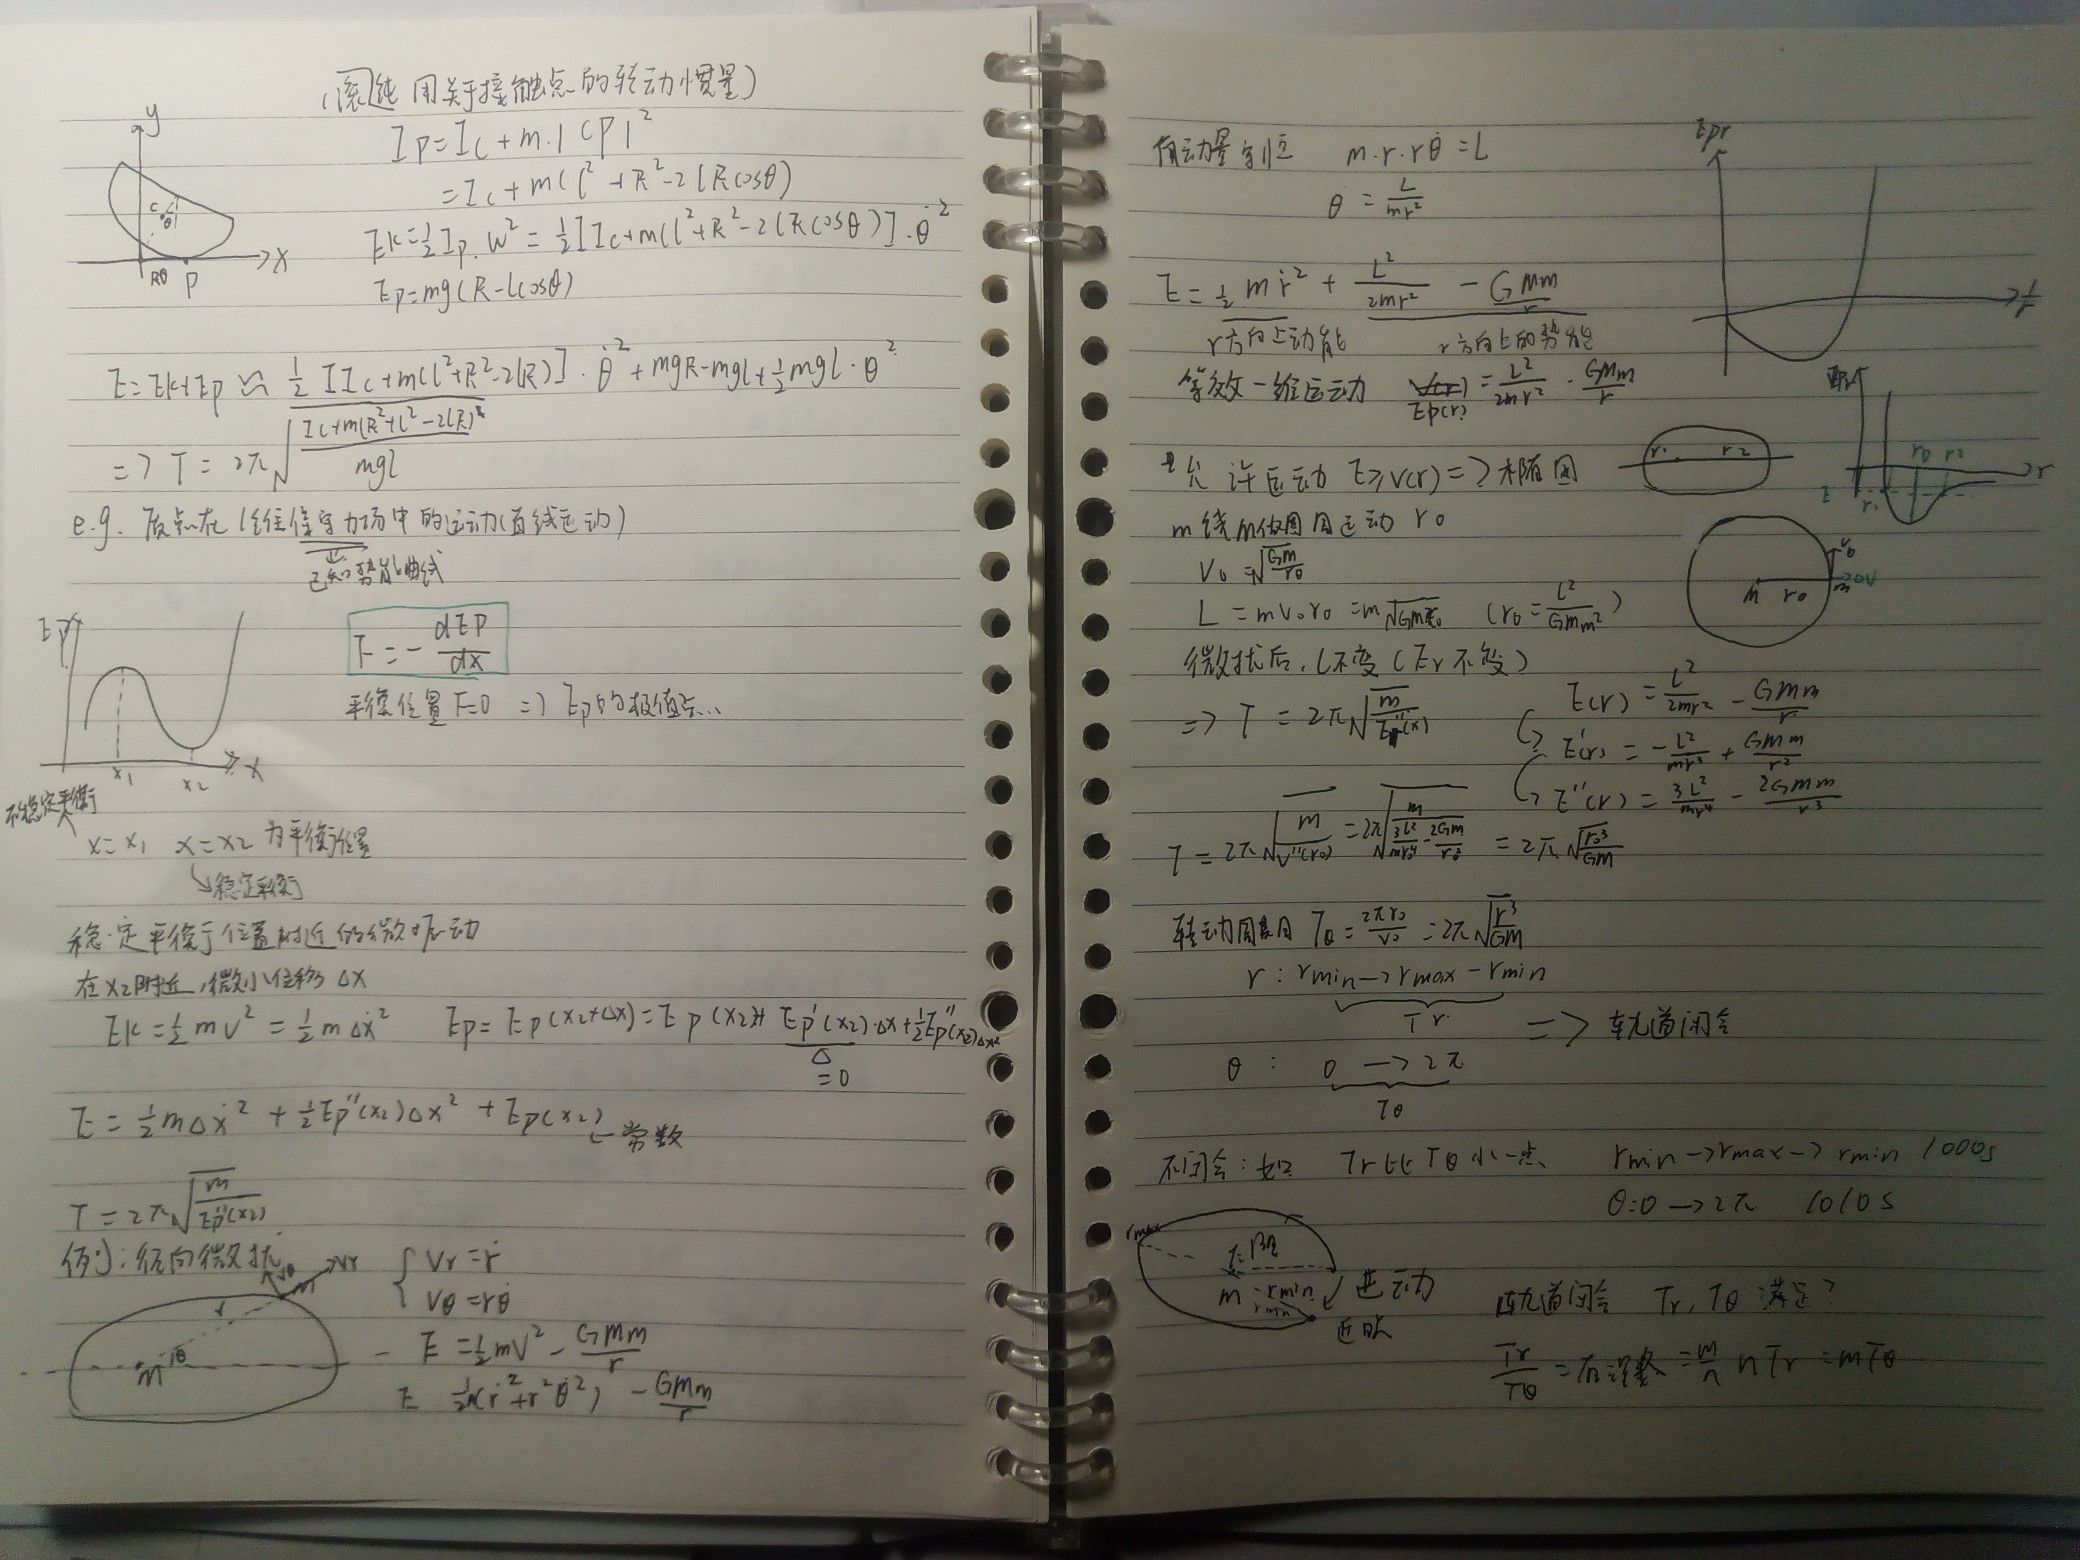 (滚纯 用关于接触点的转动惯量)
y
C
θ
Rθ
P
x
I_P = I_C + m·|CP|²
= I_C + m(l²+R²-2lRcosθ)
Ek = ½ I_P·ω² = ½[I_C+m(l²+R²-2lRcosθ)]·θ̇²
Ep = mg(R-lcosθ)
E = Ek+Ep ≈ ½[I_C+m(l²+R²-2lR)]·θ̇² + mgR-mgl+½mgl·θ²
=> T = 2π√((I_C+m(R²+l²-2lR))/mgl)
e.g. 质点在1维保守力场中的运动(直线运动)
已知势能曲线
Ep
x₁
x₂
x
F = -dEp/dx
平衡位置 F=0 => Ep的极值点..
不稳定平衡
x=x₁ x=x₂ 为平衡位置
稳定平衡
稳定平衡位置附近的微小振动
在x₂附近,微小位移Δx
Ek = ½mv² = ½mΔẋ² Ep = Ep(x₂+Δx) = Ep(x₂)+Ep'(x₂)·Δx+½Ep''(x₂)Δx²
=0
E = ½mΔẋ² + ½Ep''(x₂)Δx² + Ep(x₂) ← 常数
T = 2π√(m/Ep''(x₂))
例: 径向微扰
vθ
m
vr
r
M
θ
{ Vr = ṙ
Vθ = rθ̇
E = ½mv² - GMm/r
E ½m(ṙ²+r²θ̇²) - GMm/r
角动量守恒 m·r·rθ̇ = L
θ̇ = L/mr²
Epr
1/r
E = ½mṙ² + L²/2mr² - GMm/r
r方向上动能 r方向上的势能
等效一维运动 Ep(r) = L²/2mr² - GMm/r
r₁ r₂
r₀ r₂
E
r₁
r
允许运动 E≥V(r) => 椭圆
m绕M做圆周运动 r₀
V₀ = √(GM/r₀)
M r₀
v₀
m
L = mv₀r₀ = m√(GMr₀) (r₀ = L²/GMm²)
微扰后, L不变 (Er不变)
=> T = 2π√(m/Ep''(x))
E(r) = L²/2mr² - GMm/r
E'(r) = -L²/mr³ + GMm/r²
E''(r) = 3L²/mr⁴ - 2GMm/r³
T = 2π√(m/V''(r₀)) = 2π√(m/(3L²/mr₀⁴ - 2GMm/r₀³)) = 2π√(r₀³/GM)
转动周期 Tθ = 2πr₀/v₀ = 2π√(r³/GM)
r: rmin -> rmax - rmin
Tr
=> 轨道闭合
θ: 0 -> 2π
Tθ
不闭合: 如 Tr比Tθ小一点 rmin -> rmax -> rmin 1000s
θ:0 -> 2π 1010s
rmax
M
rmin
rmin
进动
近日
轨道闭合 Tr, Tθ 满足?
Tr/Tθ = 有理数 = m/n nTr = mTθ